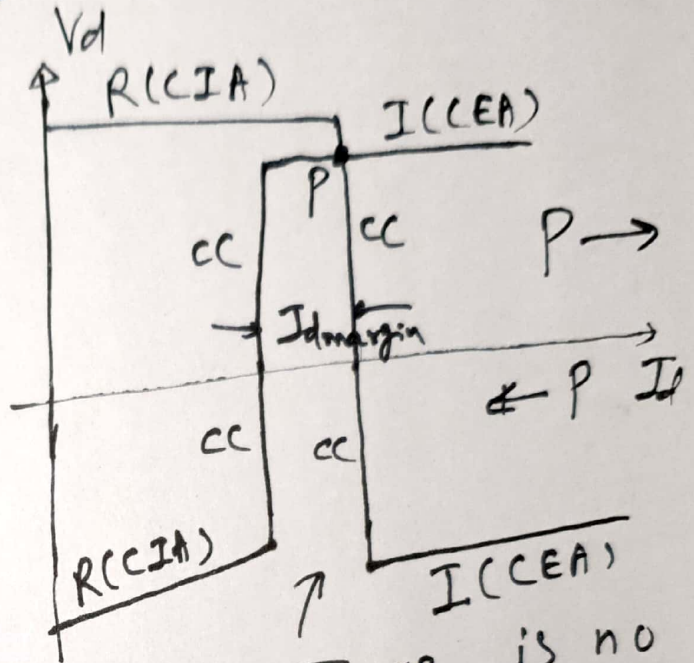 Vd
R(CIA)
I(CEA)
P
CC
CC
P →
Idmargin
← P
Id
CC
CC
R(CIA)
I(CEA)
is no